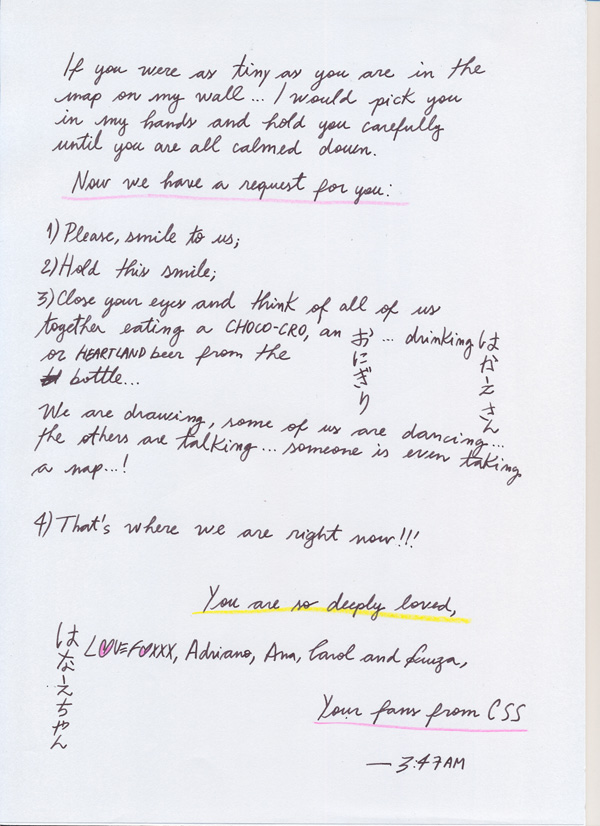 If you were as tiny as you are in the
map on my wall... I would pick you
in my hands and hold you carefully
until you are all calmed down.
Now we have a request for you:
1) Please, smile to us;
2) Hold this smile;
3) Close your eyes and think of all of us
together eating a CHOCO-CRO, an おにぎり ... drinking はかーえさん
or HEARTLAND beer from the
bottle...
We are drawing, some of us are dancing...
the others are talking... someone is even taking
a nap...!
4) That's where we are right now!!!
You are so deeply loved,
はなーえちゃん
LOVEFOXXX, Adriano, Ana, Carol and Luiza,
Your fans from CSS
— 3:47AM